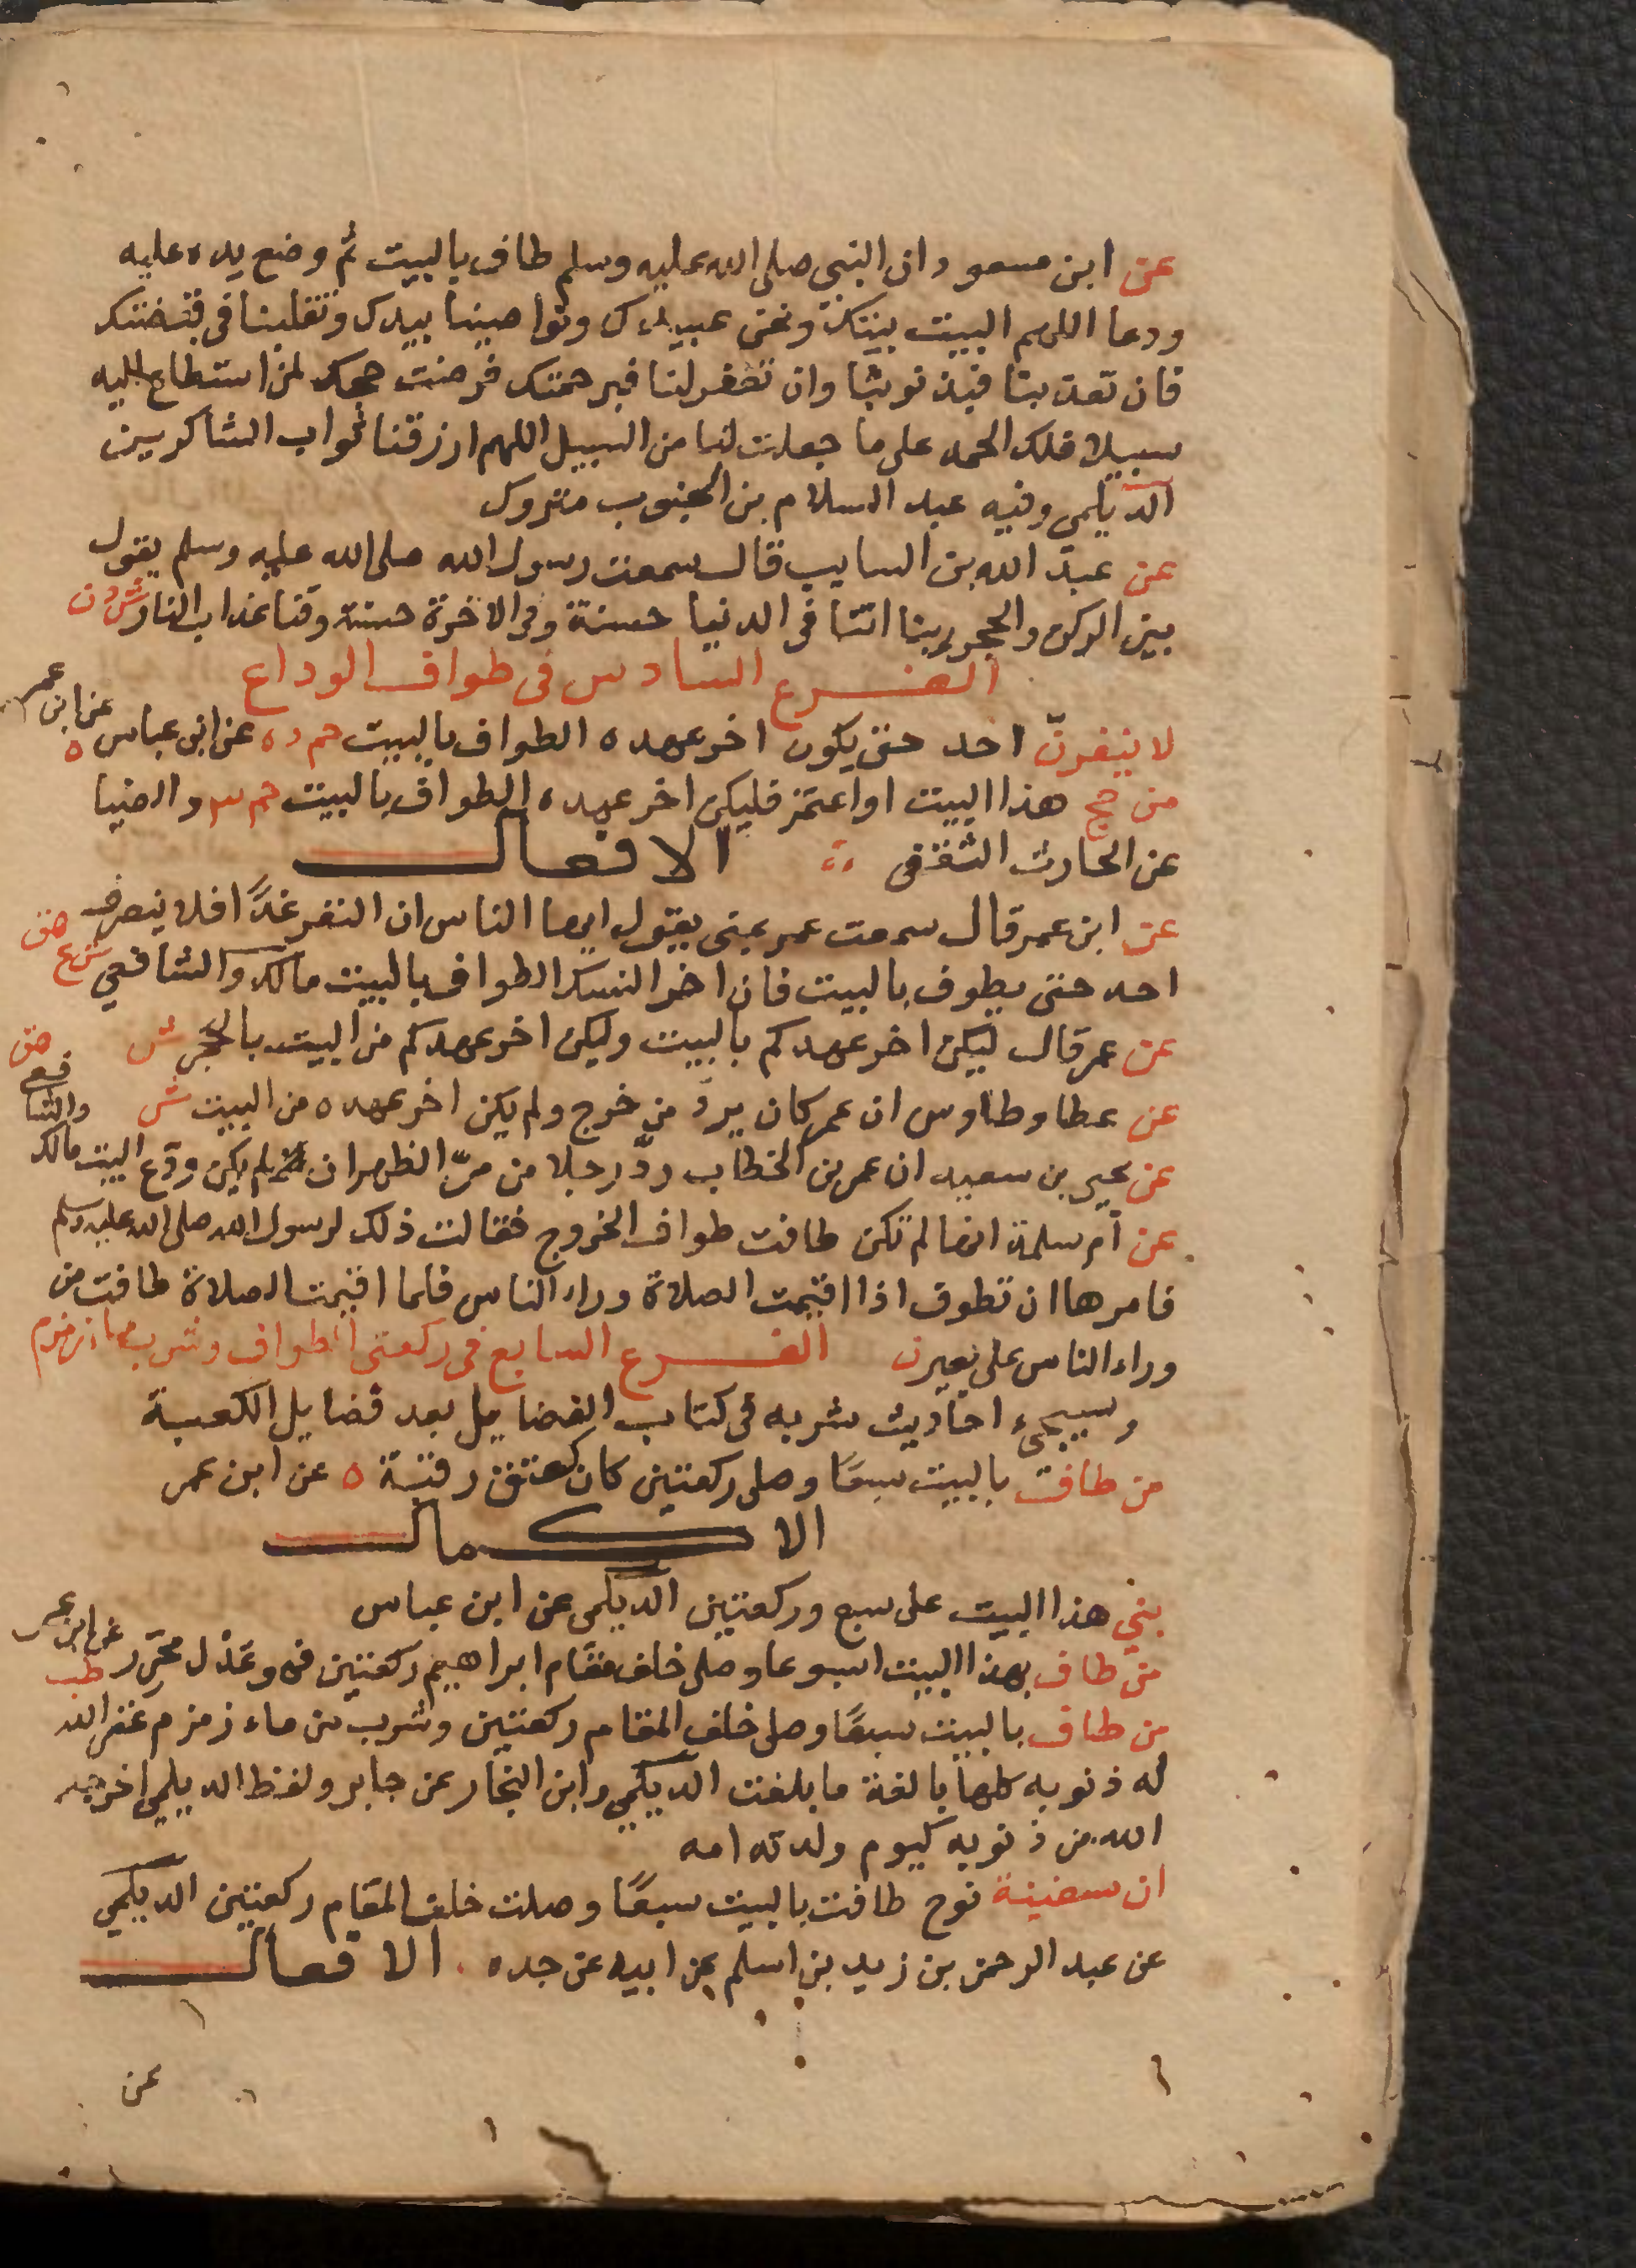 عن ابن مسعود ان النبي صلى الله عليه وسلم طاف بالبيت ثم وضع يده عليه
ودعا اللهم البيت بيتك ونحن عبيدك ونواصينا بيدك وتقلبنا في قبضتك
فان تعذبنا فبذنوبنا وان تغفر لنا فبرحمتك فرضت حجك لمن استطاع اليه
سبيلا فلك الحمد على ما جعلت لنا من السبيل اللهم ارزقنا ثواب الشاكرين
الديلمي وفيه عبد السلام بن الجنوب متروك
عن عبد الله بن السايب قال سمعت رسول الله صلى الله عليه وسلم يقول
بين الركن والحجر ربنا اتنا في الدنيا حسنة وفي الاخرة حسنة وقنا عذاب النار ش د ن
الفرع السادس في طواف الوداع
لا ينفرن احد حتى يكون اخر عهده الطواف بالبيت حم د ه عن ابن عباس ه عن ابن عمر
من حج هذا البيت او اعتمر فليكن اخر عهده الطواف بالبيت حم ٣ والضيا
عن الحارث الثقفي الافعال
عن ابن عمر قال سمعت عمر بمنى يقول ايها الناس ان النفر غدًا فلا ينصرف
احد حتى يطوف بالبيت فان اخر النسك الطواف بالبيت مالك والشافعي ش ع هق
عن عمر قال ليكن اخر عهدكم بالبيت وليكن اخر عهدكم من البيت بالحجر ش هق
عن عطا وطاوس ان عمر كان يردّ من خرج ولم يكن اخر عهده من البيت ش
عن يحيى بن سعيد ان عمر بن الخطاب ردّ رجلا من مرّ الظهران لم يكن ودّع البيت مالك والشافعي
عن ام سلمة انها لم تكن طافت طواف الخروج فقالت ذلك لرسول الله صلى الله عليه وسلم
فامرها ان تطوف اذا اقيمت الصلاة وراء الناس فلما اقيمت الصلاة طافت من
وراء الناس على بعير ن الفرع السابع في ركعتي الطواف وشرب ماء زمزم
وسيجيء احاديث شربه في كتاب الفضايل بعد فضايل الكعبة
من طاف بالبيت سبعًا وصلى ركعتين كان كعتق رقبة ه عن ابن عمر
الاكمال
بني هذا البيت على سبع وركعتين الديلمي عن ابن عباس
من طاف بهذا البيت اسبوعا وصلى خلف مقام ابراهيم ركعتين فهو عدل محرّر طب عن ابن عمر
من طاف بالبيت سبعًا وصلى خلف المقام ركعتين وشرب من ماء زمزم غفر الله
له ذنوبه كلها بالغة ما بلغت الديلمي وابن النجار عن جابر ولفظ الديلمي اخرجه
الله من ذنوبه كيوم ولدته امه
ان سفينة نوح طافت بالبيت سبعًا وصلت خلف المقام ركعتين الديلمي
عن عبد الرحمن بن زيد بن اسلم عن ابيه عن جده الافعال
عن